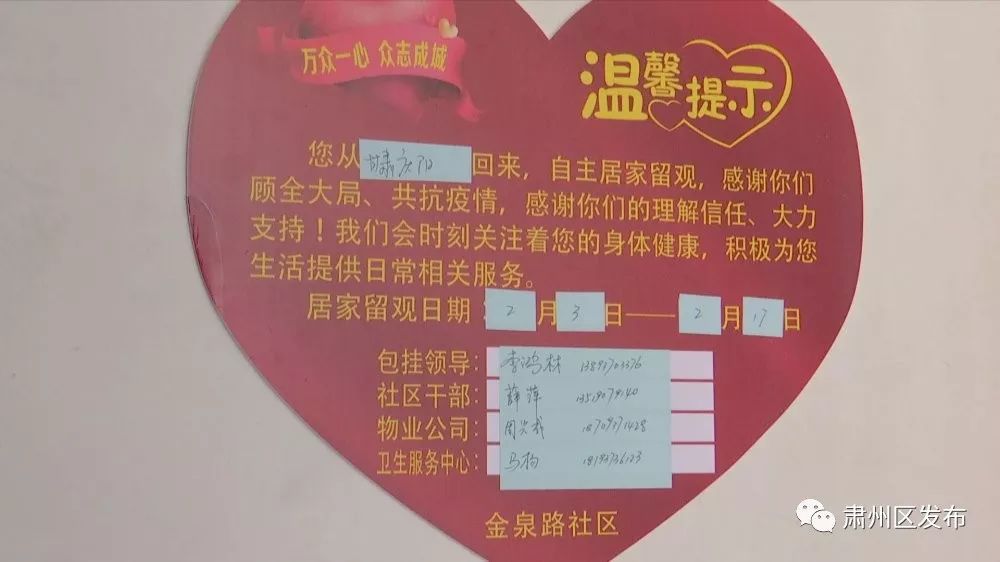 万众一心 众志成城
温馨提示
您从甘肃庆阳回来，自主居家留观，感谢你们
顾全大局、共抗疫情，感谢你们的理解信任、大力
支持！我们会时刻关注着您的身体健康，积极为您
生活提供日常相关服务。
居家留观日期：2月3日——2月17日
包挂领导：李鸿林
社区干部：薛萍
物业公司：
卫生服务中心：
金泉路社区
肃州区发布